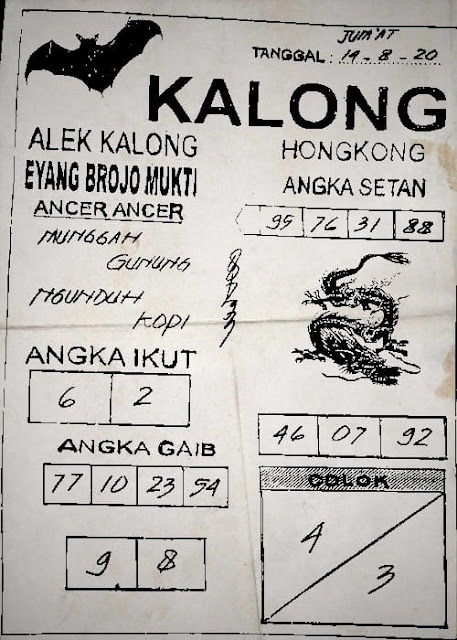 JUM'AT
TANGGAL : 14 - 8 - 20
KALONG
ALEK KALONG
EYANG BROJO MUKTI
ANCER ANCER
MUNGGAH
GUNUNG
NGUNDUH
KOPI
ANGKA IKUT
6 2
ANGKA GAIB
77 10 23 54
9 8
HONGKONG
ANGKA SETAN
95 76 31 88
46 07 92
COLOK
4
3